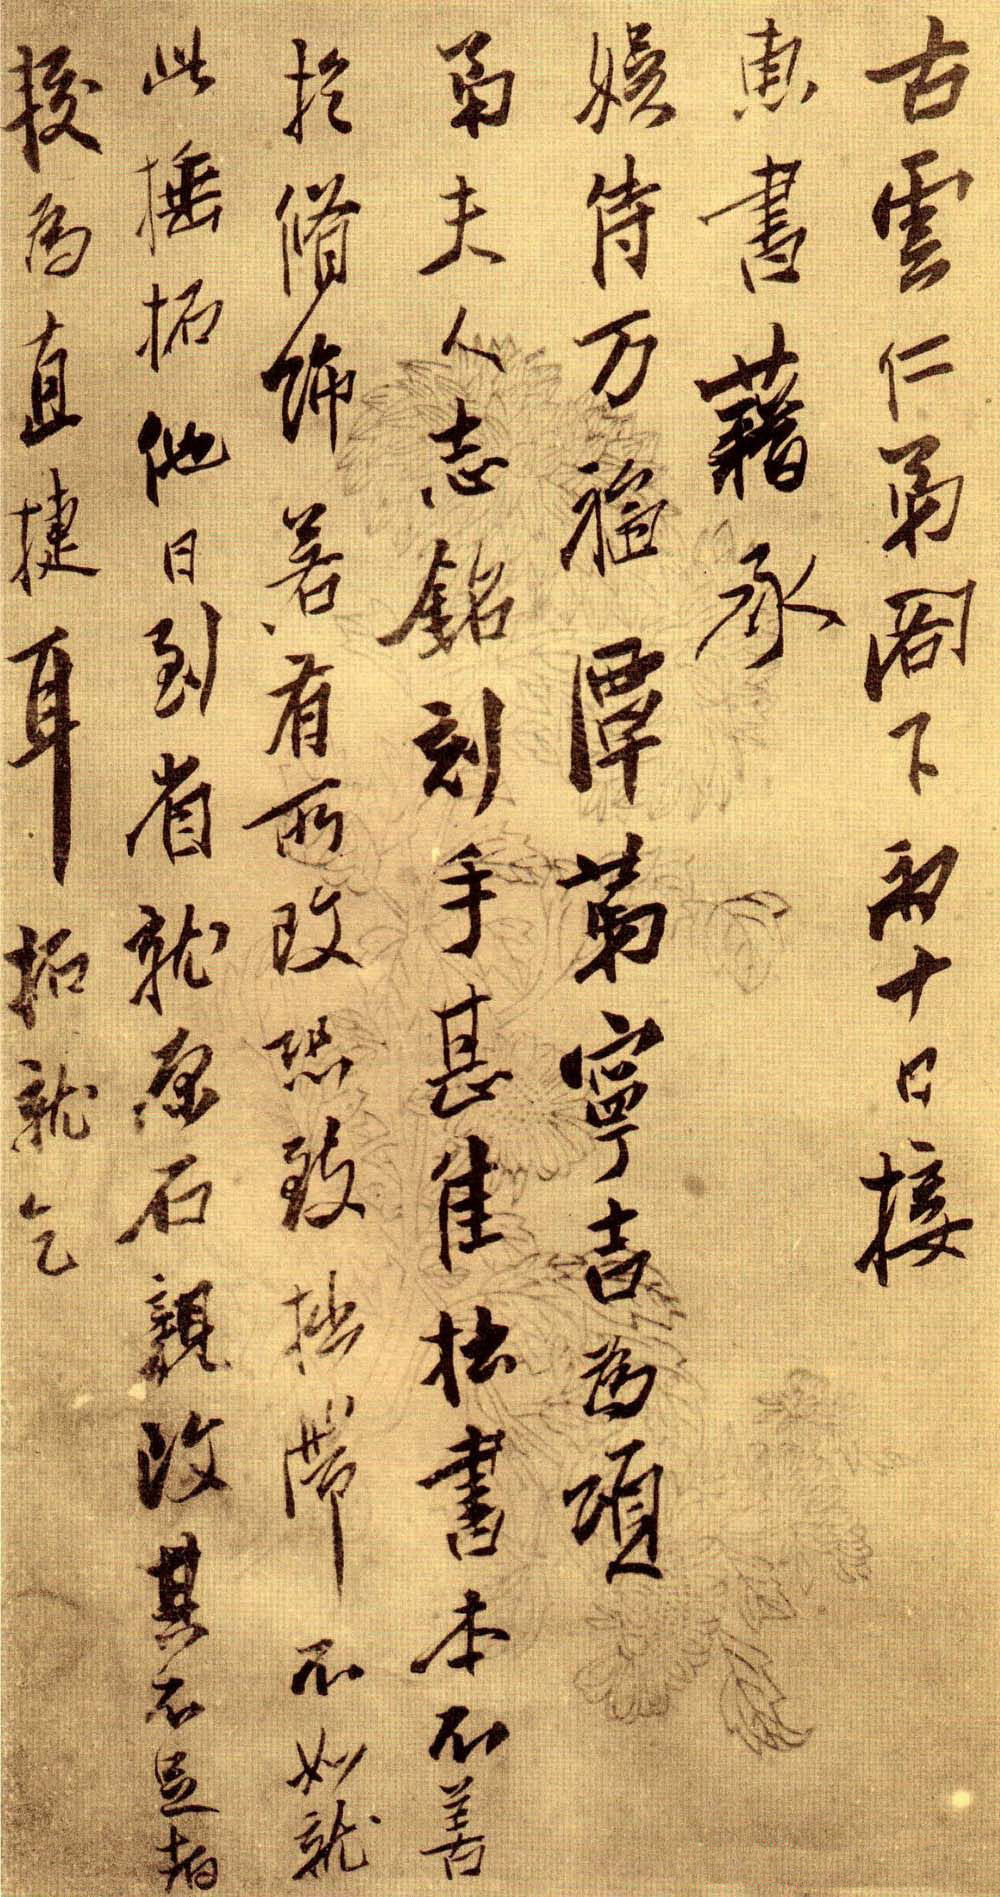 古雲仁弟閣下初十日接
惠書藉承
娛侍万福潭第寧吉為頌
弟夫人志銘刻手甚佳拙書本不善
於脩飾若有所改恐致拙滯不如就
此摇拓他日到省就原石親改其不足者
較為直捷耳拓就乞